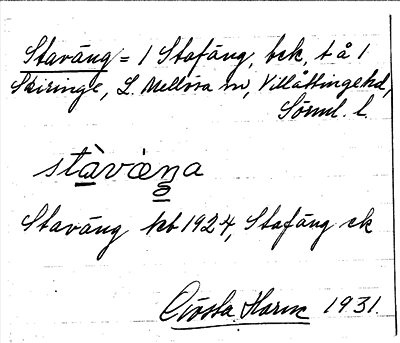 Staväng = 1 Stafäng, bck, t å 1
Skiringe, L. Mellösa sn, Villåttingehd,
Sörml. l.
stàvæ̀ŋa
Staväng kb 1924, Stafäng ek
Gösta Harne 1931.